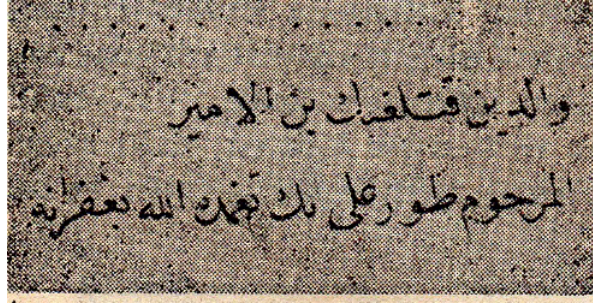 والدين قتلغبك بن الامير
المرحوم طور على بك تغمده الله بغفرانه